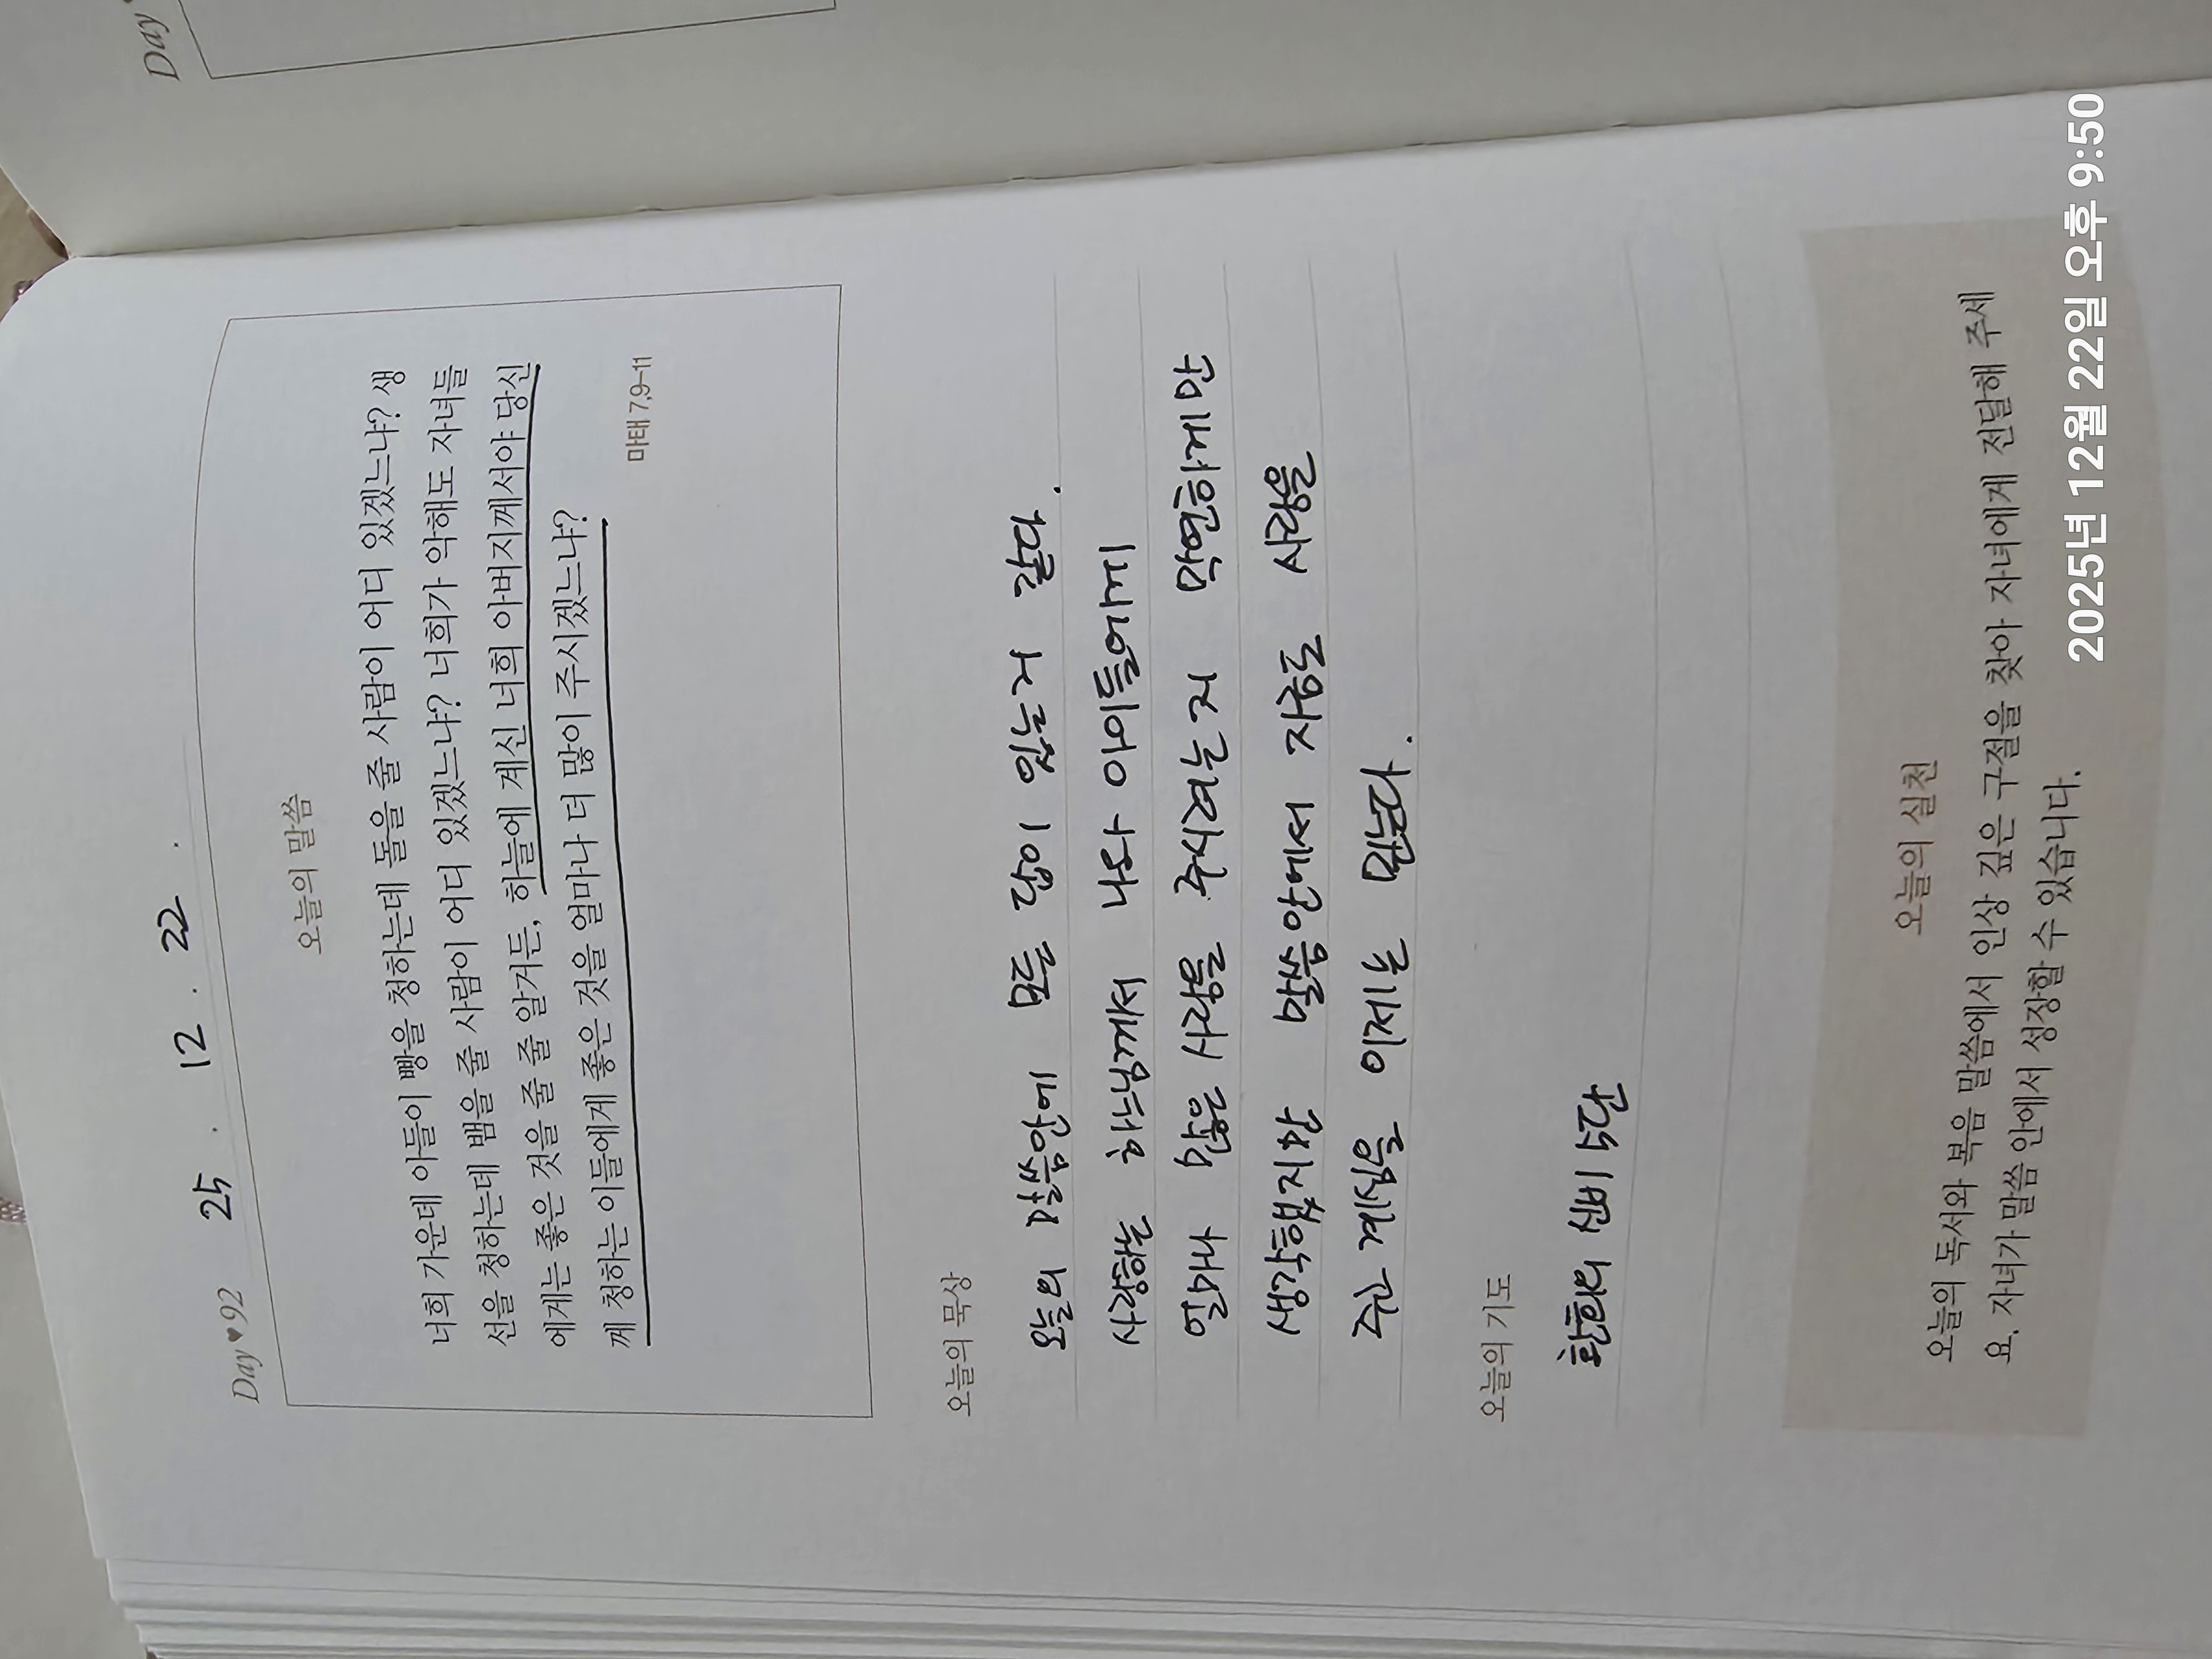 Day
Day ♥ 92
25 . 12 . 22 .
오늘의 말씀
너희 가운데 아들이 빵을 청하는데 돌을 줄 사람이 어디 있겠느냐? 생
선을 청하는데 뱀을 줄 사람이 어디 있겠느냐? 너희가 악해도 자녀들
에게는 좋은 것을 줄 줄 알거든, 하늘에 계신 너희 아버지께서야 당신
께 청하는 이들에게 좋은 것을 얼마나 더 많이 주시겠느냐?
마태 7,9-11
오늘의 묵상
오늘의 말씀안에 모든 답이 있는거 같다.
사랑하는 하느님께서 나와 아이들에게
얼마나 많은 사랑을 주시려는지 막연하게만
생각했지만 말씀안에서 자용로 사랑을
주고 계심을 이제는 믿는다.
오늘의 기도
환희의 신비 5단
오늘의 실천
오늘의 독서와 복음 말씀에서 인상 깊은 구절을 찾아 자녀에게 전달해 주세
요. 자녀가 말씀 안에서 성장할 수 있습니다.
2025년 12월 22일 오후 9:50